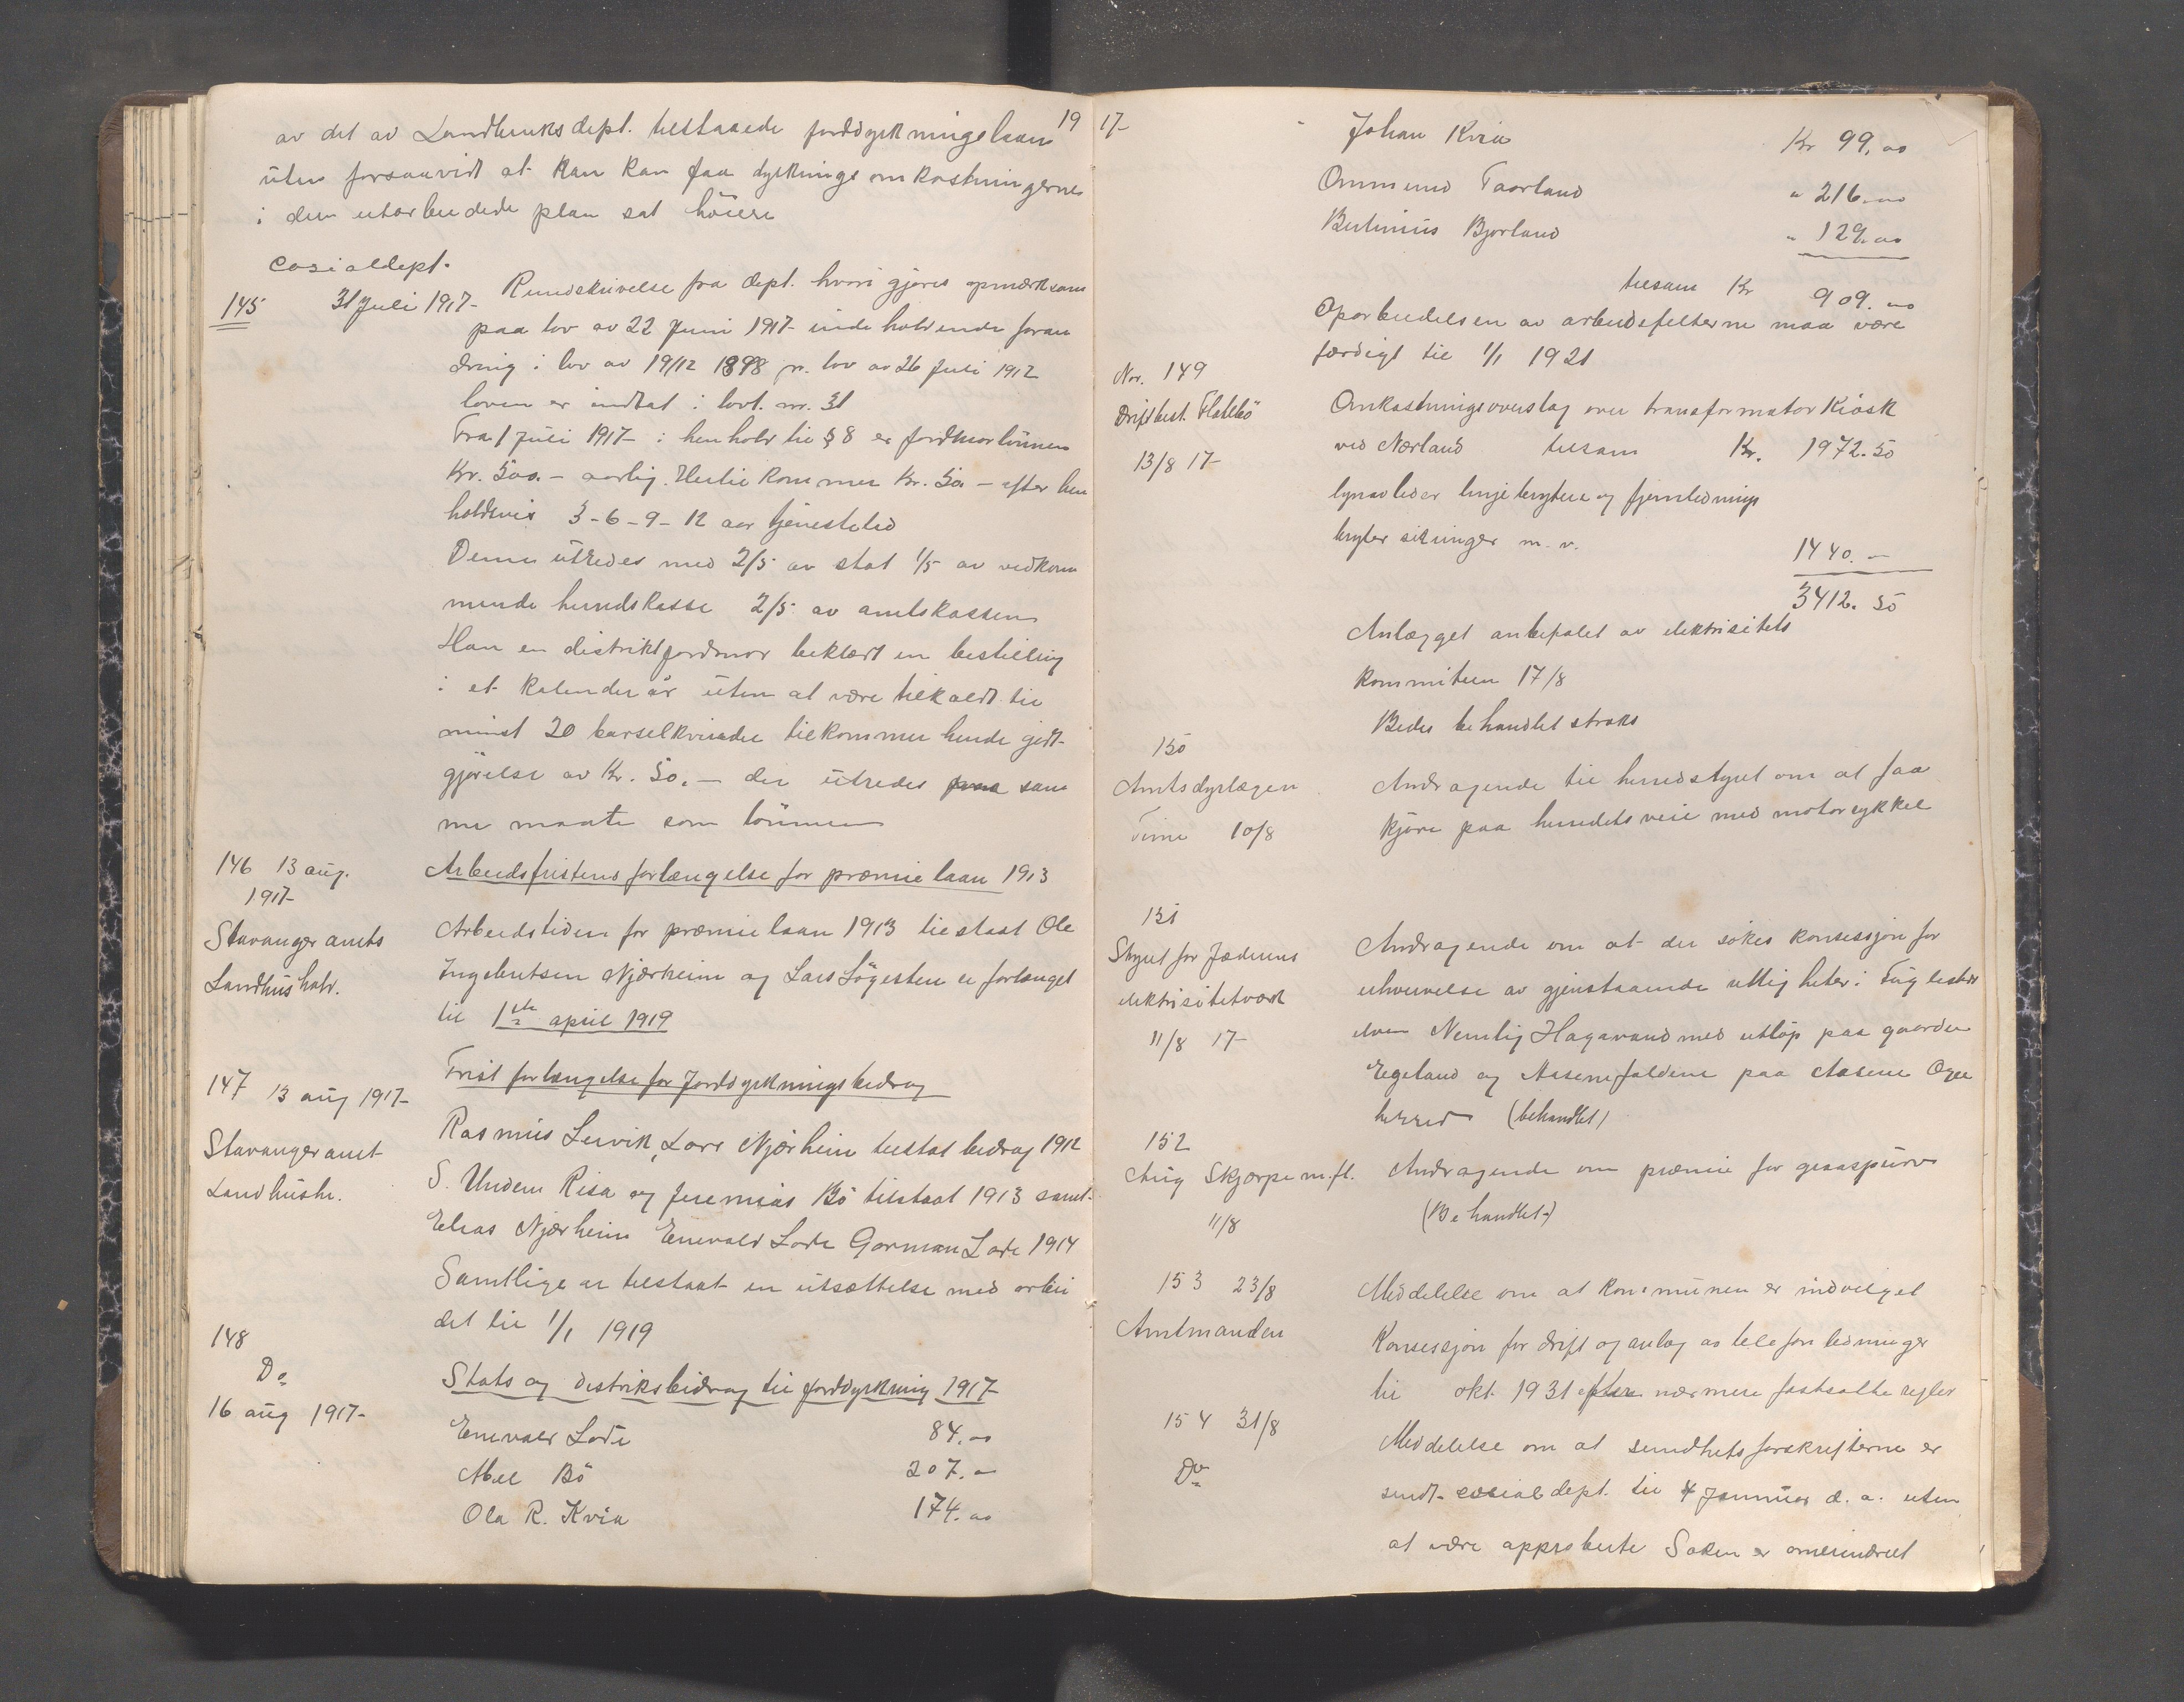 19 17-
av det av Landbruksdept. tilstaaede jorddyrkningslaan
uten forsaavidt at han kan faa dyrknings omkostningerne
i den utarbeidede plan sat höiere
Cosialdept.
145 31 Juli 1917- Rundskrivelse fra dept. hvori gjöres opmerksom
paa lov av 22 Juni 1917- inde holdende foran
dring i lov av 19/12 1898 jv. lov av 26 Juli 1912
loven er indtat i lovt. nr. 31
Fra 1 Juli 1917- i henhold til § 8 er jordmorlönnen
Kr. 500.- aarlig. Hertil kommer Kr. 50 - efter hen
holdsvis 3-6-9-12 aar tjenestetid
Denne utredes med 2/5 av stat 1/5 av vedkom
mende herredskasse 2/5 av amtskassen
Har en distriktjordmor beklædt en bestilling
i et kalenderår uten at være tilkaldt til
minst 20 barselkvinder tilkommer hende godt-
gjörelse av Kr. 50.- der utredes paa sam
me maate som lönnen
146 13 aug.
1917-
Stavanger amts
Landhushold.
Arbeidsfristens forlængelse for præmielaan 1913
Arbeidstiden for præmielaan 1913 tilstaat Ole
Ingebretsen Njærheim og Lars Lögesten er forlænget
til 1ste april 1919
147 13 aug 1917-
Stavanger amt
Landhush.
Frist forlængelse for Jorddyrkningsbidrag
Rasmus Lervik, Lars Njærheim tilstat bidrag 1912
S. Undem Risa og Jeremias Bö tilstaat 1913 samt.
Elias Njærheim Enevald Lode Gorman Lode 1914
Samtlige er tilstaat en utsættelse med arbei
det til 1/1 1919
148
Do
16 aug 1917-
Stats og distriksbidrag til jorddyrkning 1917-
Enevald Lode 84.00
Abel Bö 207.-
Ola R. Kvia 174.00
Johan Kvia Kr 99.00
Ommund Taarland " 216.00
Bertinius Bjorland " 129.00
tilsam Kr 909.00
Oparbeidelsen av arbeidsfelterne maa være
færdigt til 1/1 1921
Nr. 149
Driftbest. Flatebö
13/8 17-
Omkostningsoverslag over transformator Kiosk
ved Nærland tilsam Kr. 1972.50
lynavleder linjebrytere og fjernlednings
bryter sikringer m.v. 1440.-
3412.50
Anlægget anbefalet av elektrisitets
kommiteen 17/8
Bedes behandlet straks
150
Amtsdyrlægen
Time 10/8
Andragende til herredsstyret om at faa
kjöre paa herredets veie med motorsykkel
151
Styret for Jæderens
elektrisitetværk
11/8 17-
Andragende om at der sökes konsessjon for
erhvervelse av gjenstaaende rettigheter i Fuglestad
elven Nemlig Hagavand med utlöp paa gaarden
Egeland og Aasenefaldene paa Aasene Ogne
herred (behandlet)
152
Aug Skjærpe m.fl.
11/8
Andragende om præmie for graaspurv
(Behandlet)
153 23/8
Amtmanden
Meddelelse om at kommunen er indvilget
Konsessjon for drift og anlæg av telefon ledninger
til okt. 1931 efter nærmere fastsatte regler
154 31/8
Do
Meddelelse om at sundhetsforskrifterne er
sendt socialdept. til 4 Januar d. a. uten
at være approberte Saken er omerindret